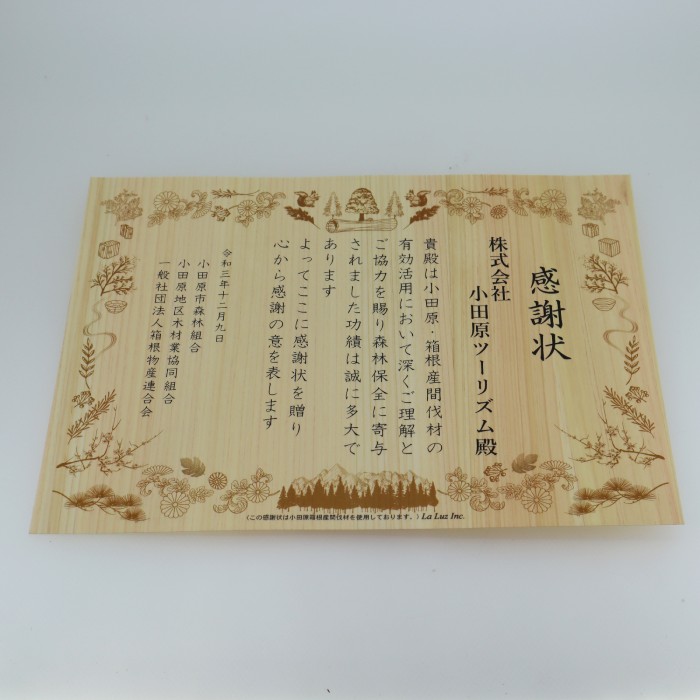 感謝状
株式会社
小田原ツーリズム殿
貴殿は小田原・箱根産間伐材の
有効活用において深くご理解と
ご協力を賜り森林保全に寄与
されました功績は誠に多大で
あります
よってここに感謝状を贈り
心から感謝の意を表します
令和三年十二月九日
小田原市森林組合
小田原地区木材業協同組合
一般社団法人箱根物産連合会
(この感謝状は小田原箱根産間伐材を使用しております。) La Luz Inc.